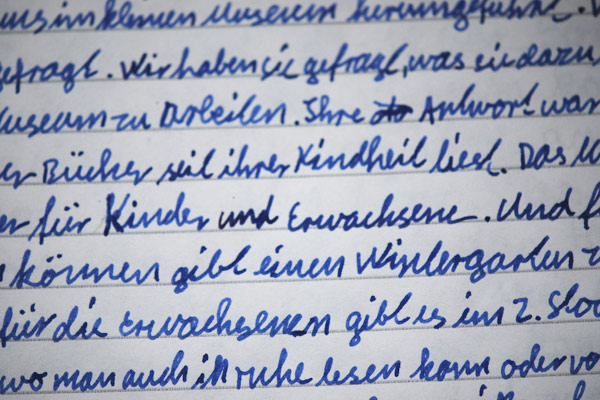 uns im kleinen Museum herumgeführt.
gefragt. Wir haben sie gefragt, was sie dazu
Museum zu arbeiten. Ihre Antwort war
Bücher seit ihrer Kindheit liest. Das
für Kinder und Erwachsene. Und
können gibt einen Wintergarten
für die Erwachsenen gibt es im 2. Stoc
wo man auch in ruhe lesen kann oder vo